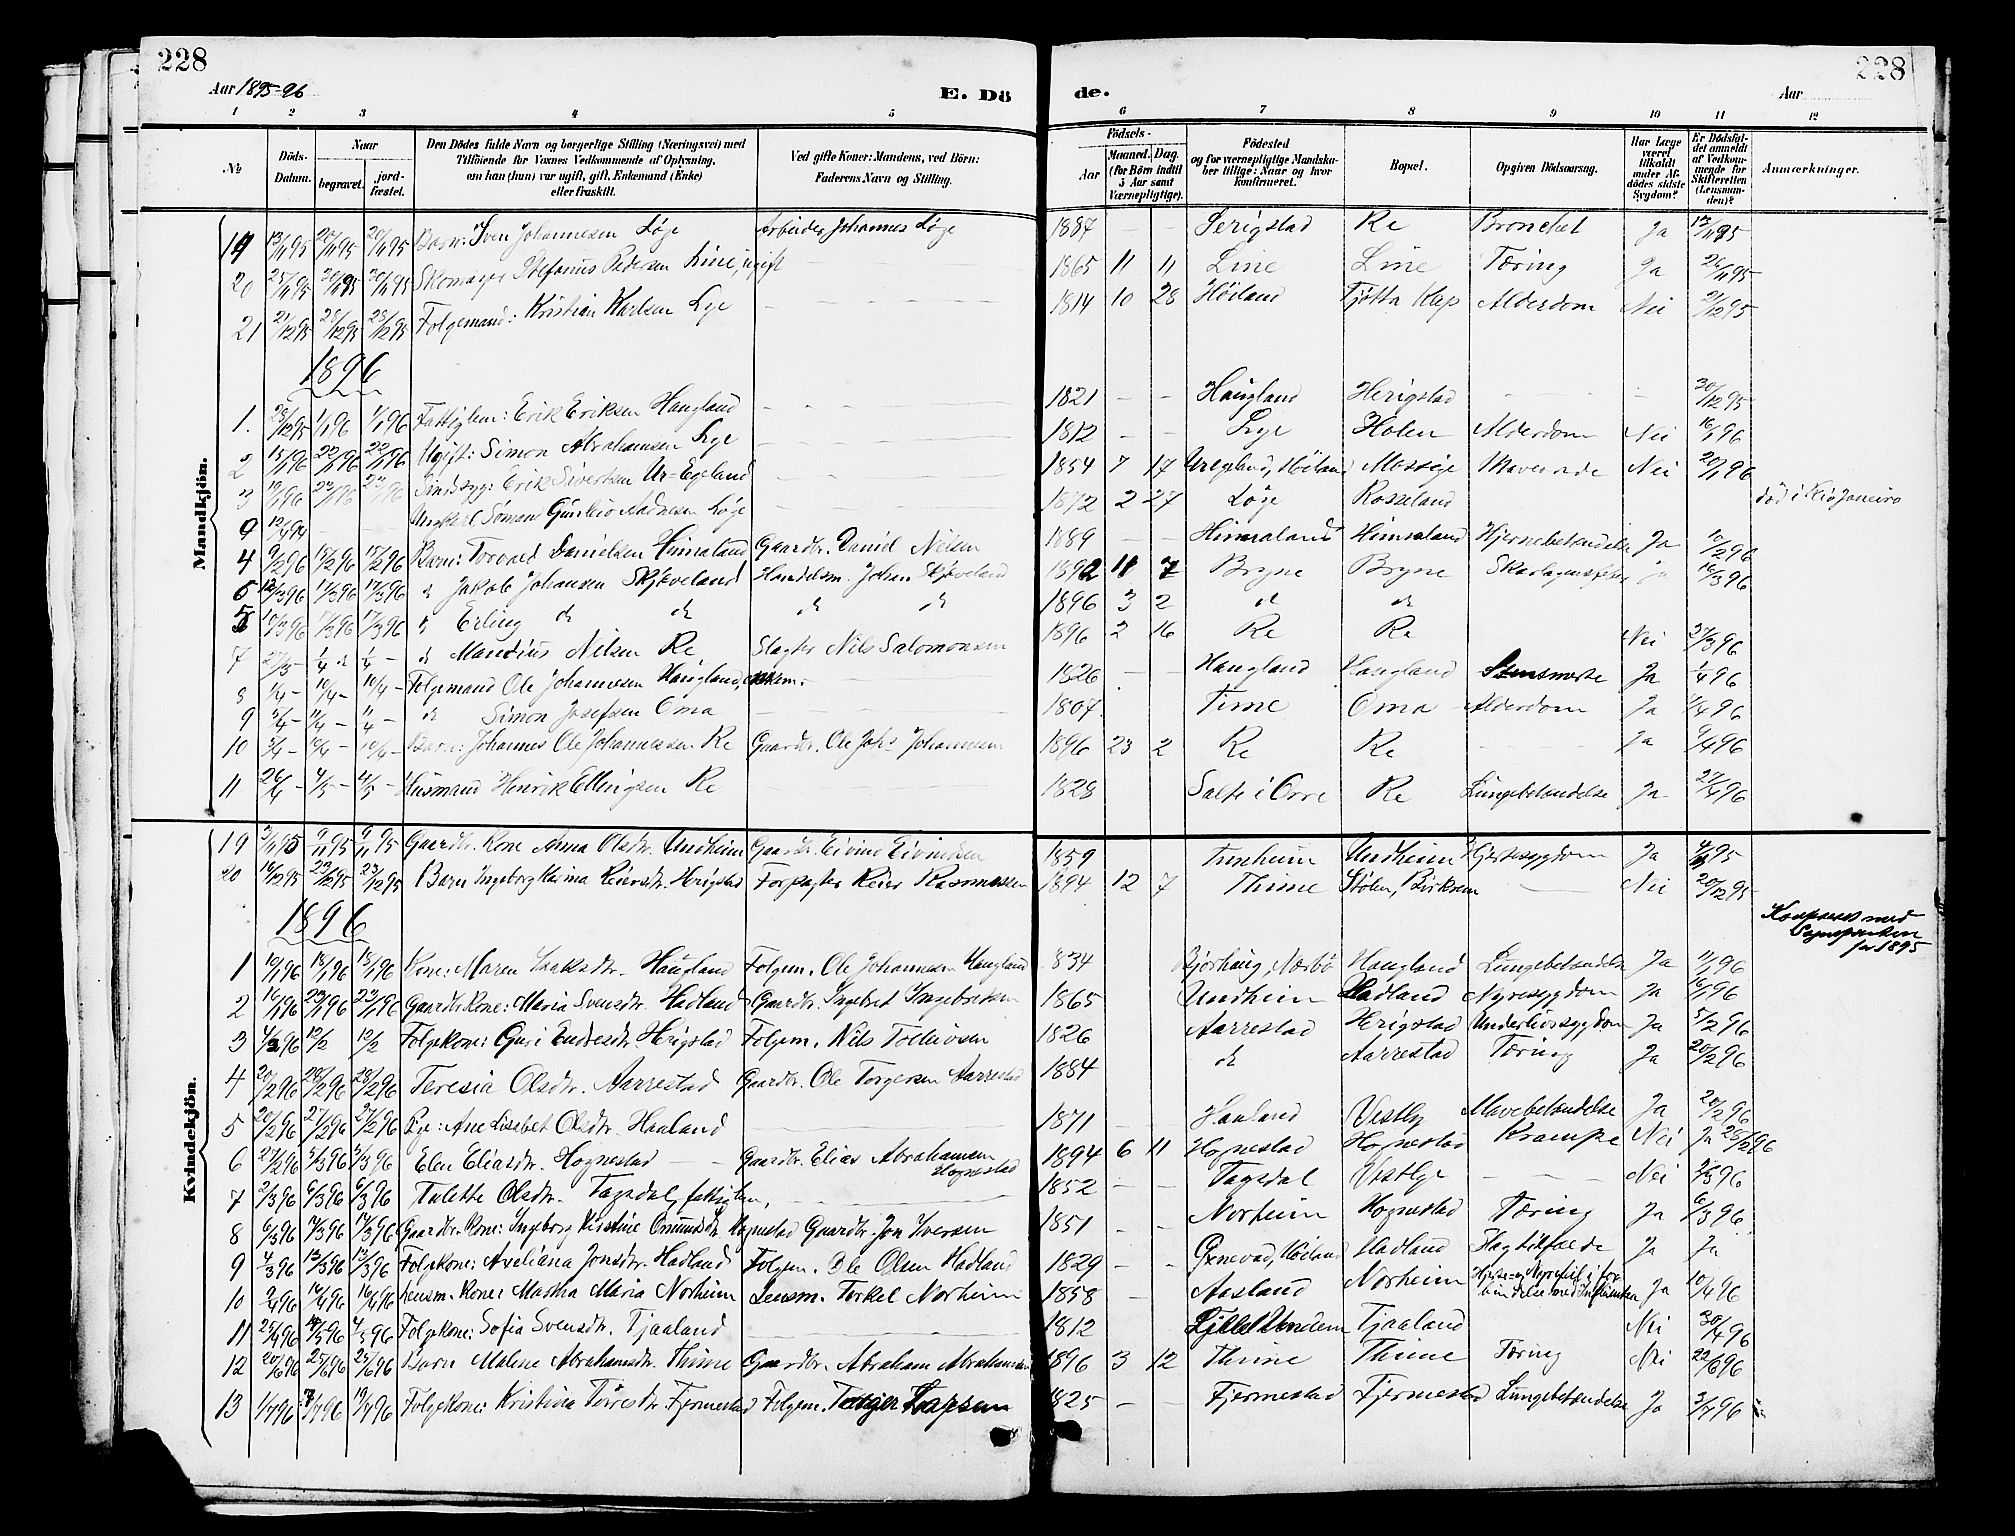 228
228
Aar 1895-96
E. Dö de.
Aar
1 2 3 4 5 6 7 8 9 10 11 12
No
Döds-Datum.
Naar
begravet.
jord-fæstet.
Den Dödes fulde Navn og borgerlige Stilling (Næringsvei) med
Tilföiende for Voxnes Vedkommende af Oplysning,
om han (hun) var ugift, gift, Enkemand (Enke)
eller fraskilt.
Ved gifte Koner: Mandens, ved Börn:
Faderens Navn og Stilling.
Födsels-
Aar
Maaned. Dag.
(for Börn indtil
5 Aar samt
Værnepligtige).
Födested
og for værnepligtige Mandska-
ber tillige: Naar og hvor
konfirmeret.
Bopæl.
Opgiven Dödsaarsag.
Har Læge
været
tilkaldt
under Af-
dödes sidste
Sygdom?
Er Dödsfal-
det anmeldt
af Vedkom-
mende for
Skifteretten
(Lensman-
den)?
Anmærkninger.
Mandkjön.
19 13/11 95 20/11 95 20/11 95 Barn: Sven Johannesen Löge Arbeider Johannes Löge 1887 – – Serigstad Re Bronchit Ja
20 25/11 95 Skomager Stefanus Pedersen Line, ugift 1865 11 11 Line Line Tæring Ja 26/11 95
21 21/12 95 28/12 95 28/12 95 Folgemand: Kristian Karlsen Lye 1814 10 28 Höiland Tjøtta Klep Alderdom Nei
1896
1. 28/12 95 1/1 96 1/1 96 Fattiglem: Erik Eriksen Haugland 1821 – – Haugland Herigstad 30/12 95
2 15/1 96 22/1 96 22/1 96 Ugift: Simon Abrahamsen Lye 1812 – – Lye Holen Alderdom Nei 16/1 96
3 Sindssyg: Erik Sivertsen Ur-Egeland 1854 7 17 Höiland Mossige Mavesaar Nei 20/1 96
9 Ungkarl Sömand Gunleiv Aadnesen Löge 1872 2 27 Löge Rosseland död i Rio Janeiro
4 9/2 96 15/2 96 15/2 96 Barn: Torvald Danielsen Hinnaland Gaardbr. Daniel Nilsen 1889 – – Hinnaland Hinnaland Hjernebetændelse Ja 10/2 96
6 12/3 96 17/3 96 17/3 96 d Jakob Johansen Skjæveland Handelsm. Johan Skjæveland 1892 11 7 Bryne Bryne Skarlagensfeber ja 16/3 96
5 17/3 96 17/3 96 d Erling d d d d 1896 3 2 d d
7 27/3 – 1/4 d 1/4 – d Mandius Nilsen Re Slagter Nils Salomonsen 1896 2 16 Re Re Nei 27/3 96
8 1/4 – 10/4 – 10/4 – Folgemand Ole Johannesen Haugland, enkem. 1826 – – Haugland Haugland Ja 1/4 96
9 5/4 – 11/4 – 11/4 – d Simon Josefsen Oma 1807 Time Oma Alderdom Ja
10 Barn: Johannes Ole Johannessen Re Gaardbr. Ole Johs Johannesen 1896 23 2 Re Re Ja
11 26/4 4/5 – 4/5 – Husmand Henrik Ellingsen Re 1828 Salte i Orre Re Lungebetændelse Ja 27/4 96
Kvindekjön.
19 3/11 95 9/11 95 9/11 95 Gaardbr. Kone Anna Olsdtr. Undheim Gaardbr. Eivind Eivindsen 1859 Tunheim Undheim Hjertesygdom Ja
20 16/12 95 23/12 95 23/12 95 Barn Ingeborg Karina Reiersdtr. Herigstad Forpagter Reier Rasmussen 1894 12 7 Thime Stölen, Birksem Nei 20/12 95
1896
med
for 1895
1 10/1 96 18/1 96 18/1 96 Kone: Maren Isaksdtr. Haugland Folgem. Ole Johannesen Haugland 1834 Bjorhaug, Nærbö Haugland Lungebetændelse Ja 11/1 96
2 16/1 96 23/1 96 23/1 96 Gaardbr. Kone: Maria Svensdtr. Hadland Gaardbr. Ingebret Ingebretsen 1865 Undheim Hadland Nyresygdom Ja 16/1 96
3 4/2 96 12/2 12/2 Folgekone: Guri Endresdtr. Herigstad Folgem. Nils Tolleivsen 1826 Aarrestad Herigstad Underlivssygdom Ja 5/2 96
4 20/2 96 28/2 96 28/2 96 Teresia Olsdtr. Aarrestad Gaardbr. Ole Torgersen Aarrestad 1884 d Aarrestad Tæring Ja 20/2 96
5 20/2 96 27/2 96 27/2 96 Pige: Ane Lisebet Olsdtr. Haaland 1871 – Haaland Vestly Mavebetændelse Ja 20/2 96
6 27/2 96 5/3 96 5/3 96 Elen Eliasdtr. Hognestad Gaardbr. Elias Abrahamsen Hognestad 1894 6 11 Hognestad Hognestad Krampe Nei Ja 28/2 96
7 2/3 96 6/3 96 6/3 96 Talette Olsdtr. Tagsdal, fattiglem, 1852 – – Tagsdal Vestlye Nei
8 6/3 96 17/3 96 17/3 96 Gaardbr. Kone: Ingeborg Kirstine Omundsdtr. Hognestad Gaardbr. Jon Iversen 1851 – – Norheim Hognestad Tæring Ja 6/3 96
9 4/3 96 13/3 96 13/3 96 Folgekone: Axeliana Jonsdtr. Hadland Folgem. Ole Olsen Hadland 1829 – Höiland Hadland Slagtilfælde Ja Ja
10 9/4 96 16/4 96 16/4 96 Lensm. Kone: Martha Maria Norheim Lensm. Torkel Norheim 1858 – Aasland Norheim Hjerte- og Nyrefeil i forbindelse med Influensa Ja 10/4 96
11 25/4 96 4/5 96 4/5 96 Folgekone: Sofia Svensdtr. Tjaaland 1812 Tjaaland Nei 30/4 96
12 20/6 96 25/6 96 25/6 96 Barn Malene Abrahamsdtr. Thime Gaardbr. Abraham Abrahamsen 1896 3 12 Thime Thime Tæring Nei 22/6 96
13 1/7 96 Folgekone: Kristina Törresdtr. Fjermestad Folgem. 1825 – – Fjermestad Fjermestad Lungebetændelse Ja 3/7 96